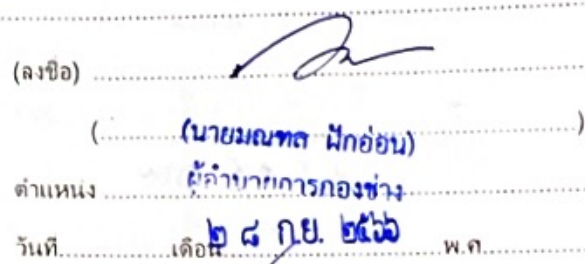 (ลงชื่อ)
( (นายมณฑล ฝักอ่อน) )
ตำแหน่ง ผู้อำนวยการกองช่าง
วันที่ เดือน ๒๘ ก.ย. ๒๕๖๖ พ.ศ.